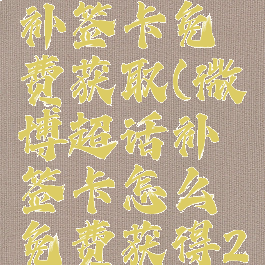 补签卡免
费获取(微
博超话补
签卡怎么
免费获得2